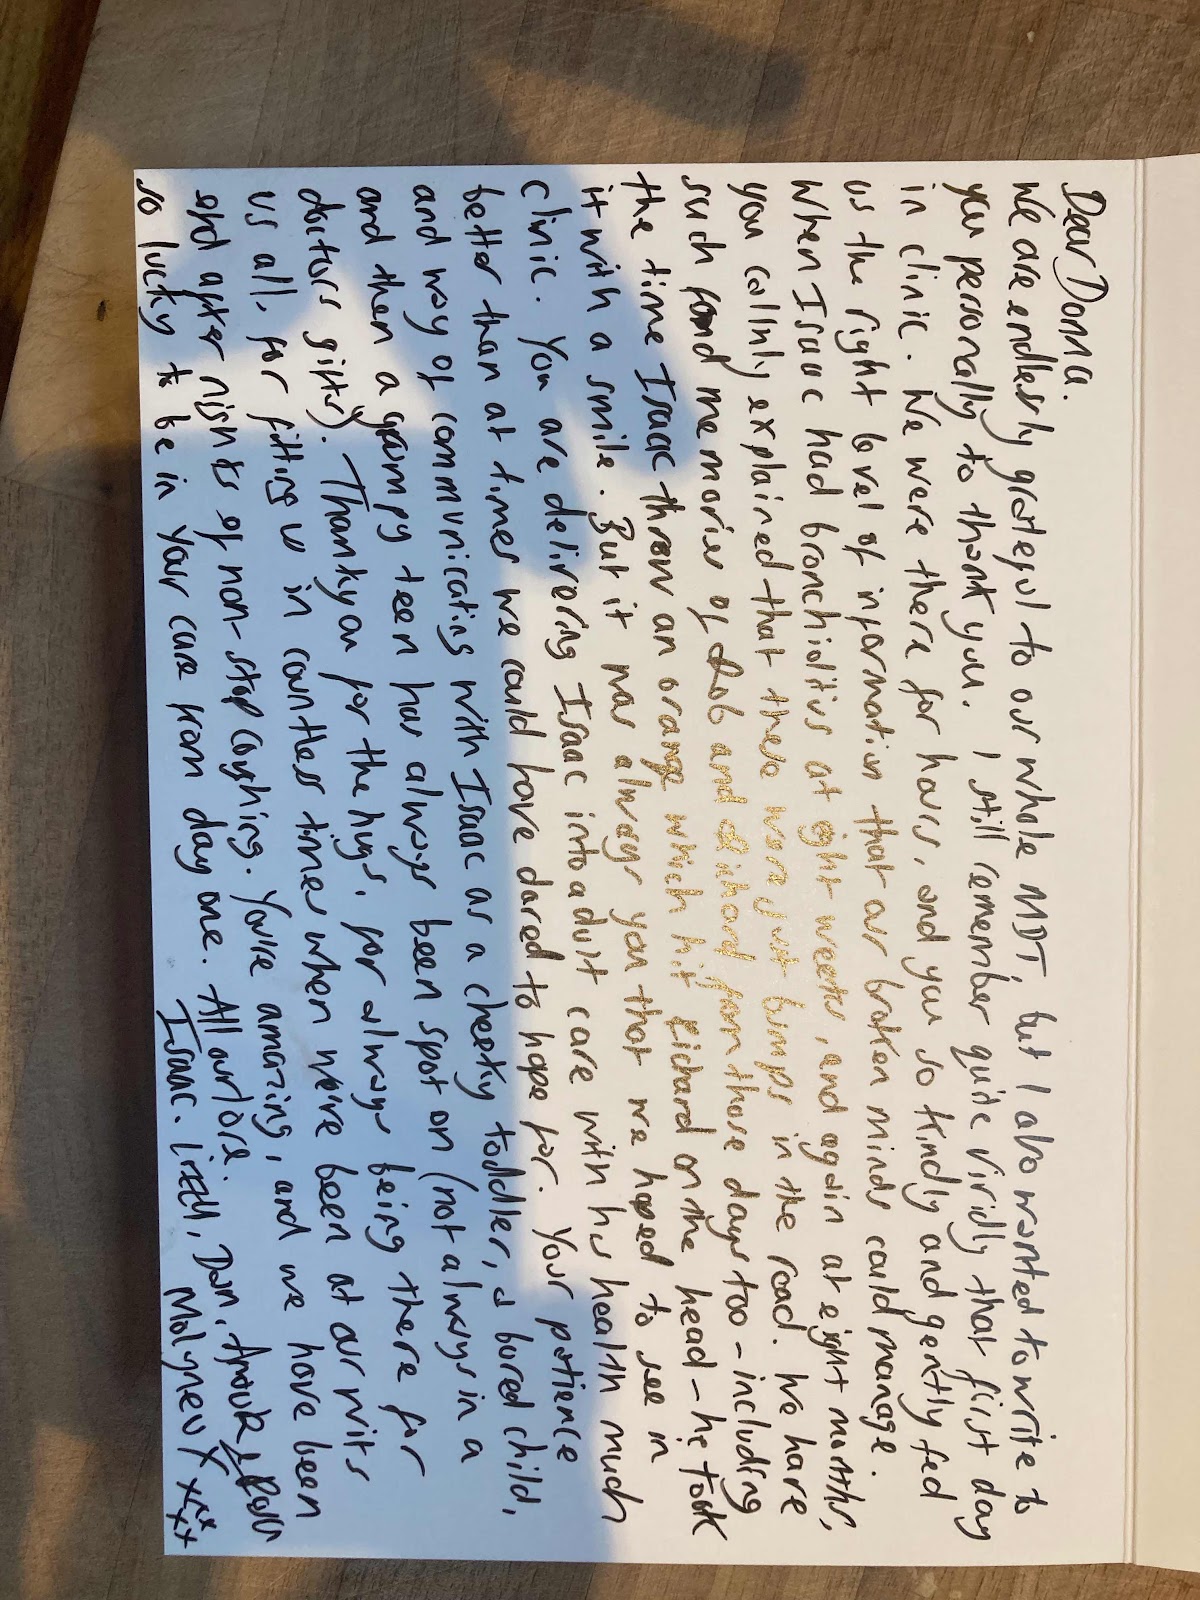 Dear Donna.
We are endlessly grateful to our whole MDT, but I also wanted to write to
you personally to thank you. I still remember quite vividly that first day
in clinic. We were there for hours, and you so kindly and gently fed
us the right level of information that our broken minds could manage.
When Isaac had bronchiolitius at eight weeks, and again at eight months,
you calmly explained that these were just bumps in the road. We have
such fond memories of Rob and Richard from those days too - including
the time Isaac threw an orange which hit Richard on the head - he took
it with a smile. But it was always you that we hoped to see in
clinic. You are delivering Isaac into adult care with his health much
better than at times we could have dared to hope for. Your patience
and way of communicating with Isaac as a cheeky toddler, a bored child,
and then a grumpy teen has always been spot on (not always in a
doctors gift!). Thankyou for the hugs, for always being there for
us all, for fitting us in countless times when we've been at our wits
end after nights of non-stop coughing. You're amazing, and we have been
so lucky to be in your care from day one. All our love,
Isaac, Lizzll, Dan, Anouk &
Molyneux xxxxx